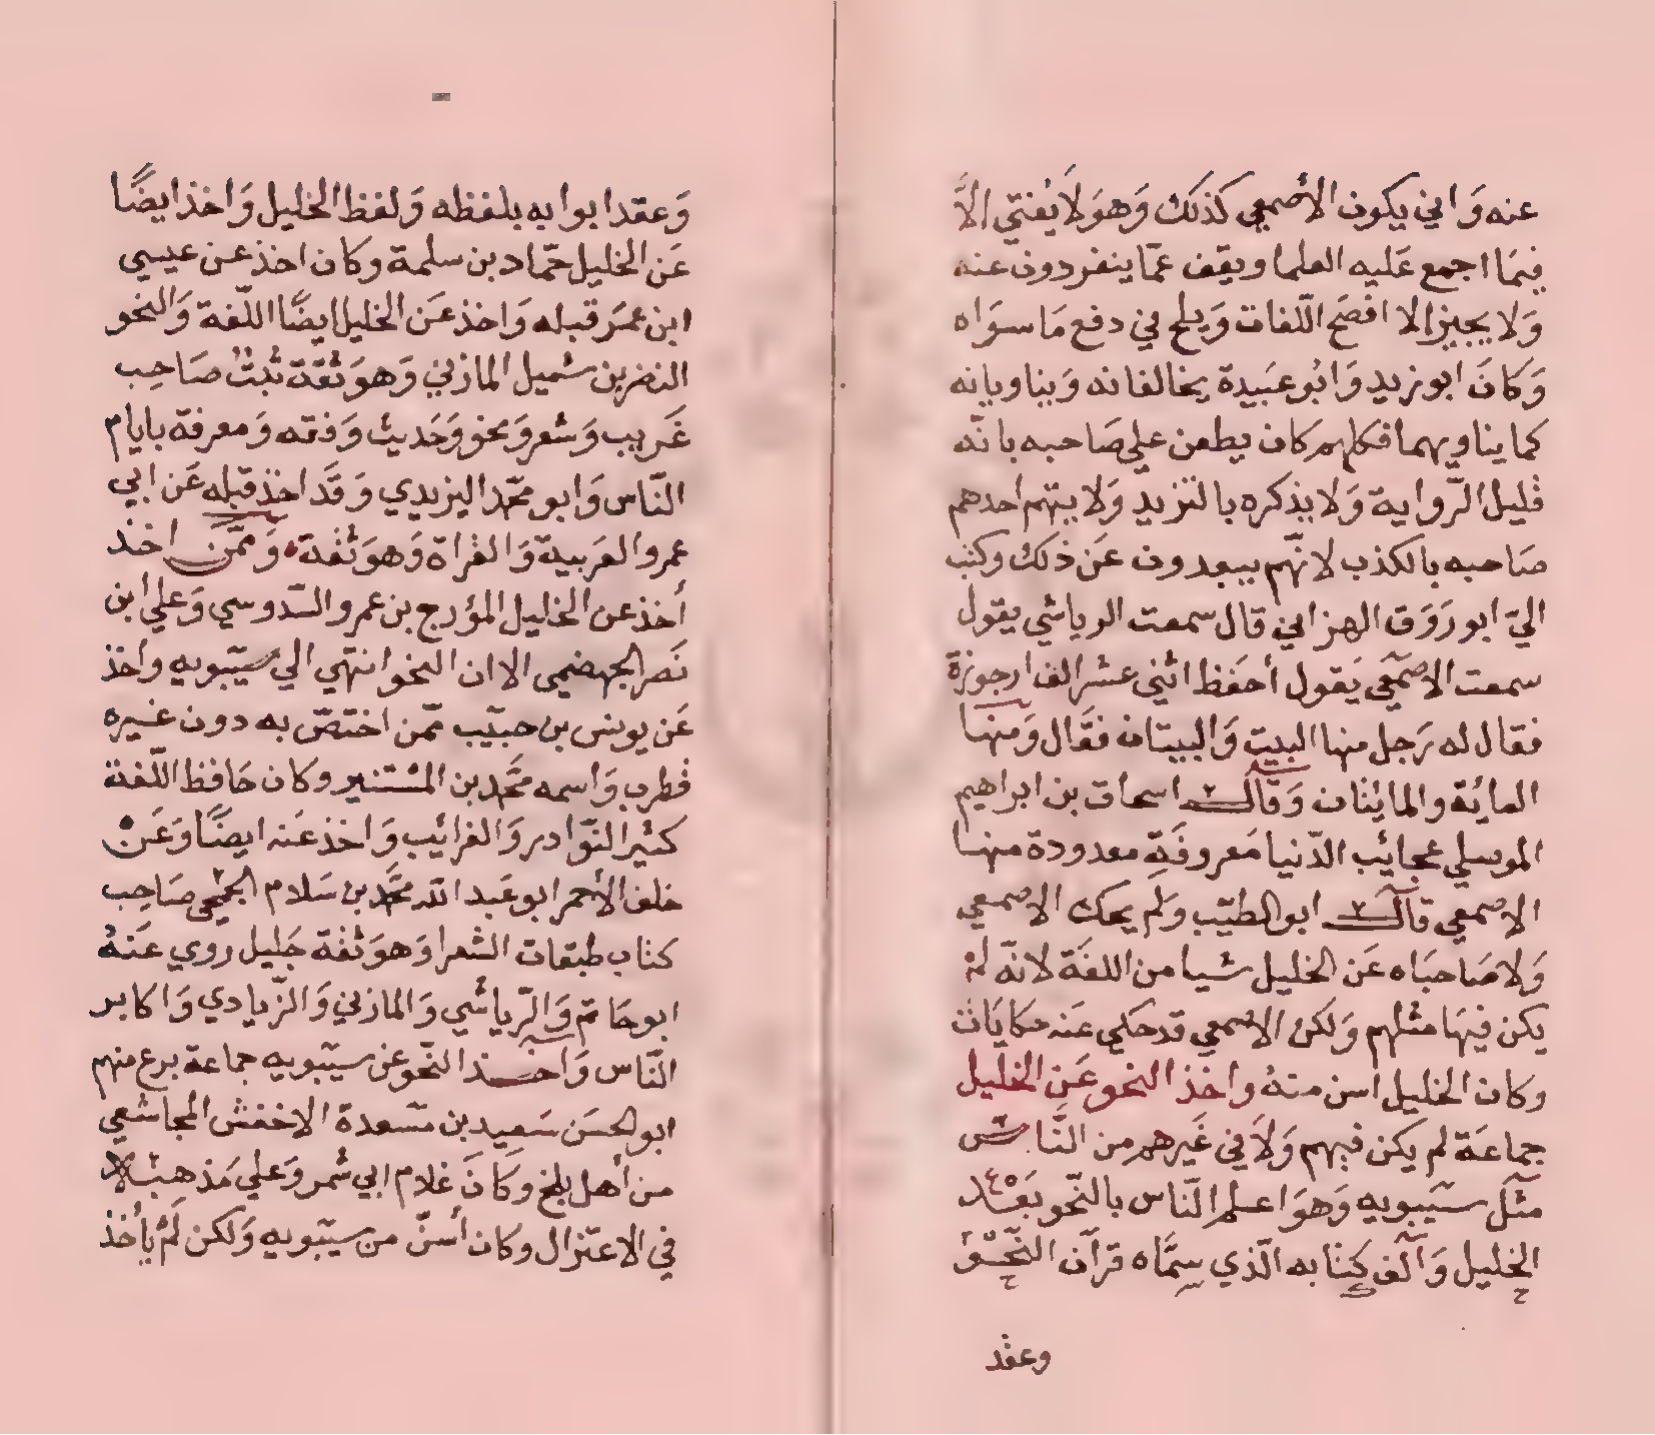 عنه وَاني يكون الأصمعي كذلك وَهوَ لاَ يُفتي الاَّ
فيمَا اجمع عَليه العلما ويقف عمّا ينفردون عنه
وَلا يجيز الا افصَح اللّغات وَيلح في دفع مَا سوَاه
وَكانَ ابو زيد وَابُو عبَيدة يخالفانه وَيناويانه
كما يناويهما فكلهم كان يطعن علي صَاحبه بانّه
قليل الرّواية وَلا يذكره بالتزيد وَلا يتهم احدهم
صَاحبه بالكذب لانّهم يبعدون عَن ذلك وكتب
اليّ ابو رَوَق الهزاني قال سمعت الرياشي يقول
سمعت الاصمَعي يَقول أحفَظ اثني عشر الف ارجوزة
فقال له رَجل منها البيت وَالبيتان فقَال وَمنها
المائة والمائتان وَقال اسحاق بن ابراهيم
الموصلي عجائب الدّنيا مَعروفَة معدودة منها
الاصمعي قال ابو الطيّب وَلم يحك الاصمعي
وَلا صَاحبَاه عَن الخليل شيا من اللغَة لانّه لمْ
يكن فيهَا مثلهم وَلكن الاصمعي قد حكي عَنه حكايَات
وكان الخليل اسن منهُ واخذ النحو عَن الخليل
جماعَة لم يكن فيهم وَلاَ في غَيرهم من النَّاس
مثل سيبويه وَهوَ اعلم النّاس بالنّحو بَعْد
الخليل وَألّف كتابه الّذي سمَّاه قرآن النّحْو
وعقد
وَعقد ابوابه بلفظه وَلفظ الخليل وَاخذ ايضًا
عَن الخليل حمّاد بن سلمة وكان اخذ عن عيسي
ابن عمَر قبله وَاخذ عَن الخليل ايضًا اللّغة وَالنحو
النضر بن شميل المازني وَهوَ ثقة ثبْتُ صَاحِب
غَريب وَشعر وَنحو وَحَديث وَفقه وَمعرفة بايام
النّاس وَابو محمّد اليزيدي وَقَد اخذ قبله عَن ابي
عمرو العَربية وَالقراة وَهوَ ثقة وَممَّن اخذ
أخذ عن الخليل المؤرج بن عمرو السّدوسي وَعلي ابن
نَصر الجهضمي الا ان النحو انتهي الي سيبويه واخذ
عَن يونس بن حبيب ممّن اختصّ به دون غيره
قطرب وَاسمه محَّمد بن المستنير وكان حَافظ اللّغة
كثير النّوادر وَالغرائب وَاخذ عَنه ايضًا وَعَنْ
خلف الأحمر ابو عَبد الله محَّمد بن سَلام الجمَحي صَاحِب
كتاب طبقات الشعرا وَهوَ ثقة جَليل روي عَنهُ
ابو حَاتم وَالرّياشي وَالمازني وَالزّيادي وَاكابر
النّاس وَاخذ النّحو عن سيبويه جماعة برع منهم
ابو الحسَن سَعيد بن مسَعدة الاخفش المجاشعي
من أهل بلخ وكَانَ غلام ابي شمر وَعلي مَذهبه
في الاعتزال وكان أسنّ من سيبويه وَلكن لَمْ يأخذ